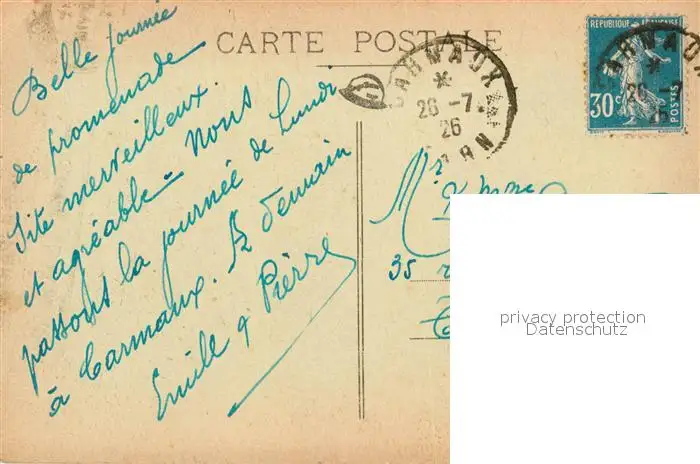 CARTE POSTALE
Belle journée
de promenade
Site merveilleux
et agréable - Nous
passons la journée de Lundi
à Carmaux. A demain
Emile & Pierre
CARMAUX
*
26 -7
26
TARN
REPUBLIQUE FRANÇAISE
30c
POSTES
CARMAUX
*
26 -7
Mr & Mme
35 r
privacy protection
Datenschutz